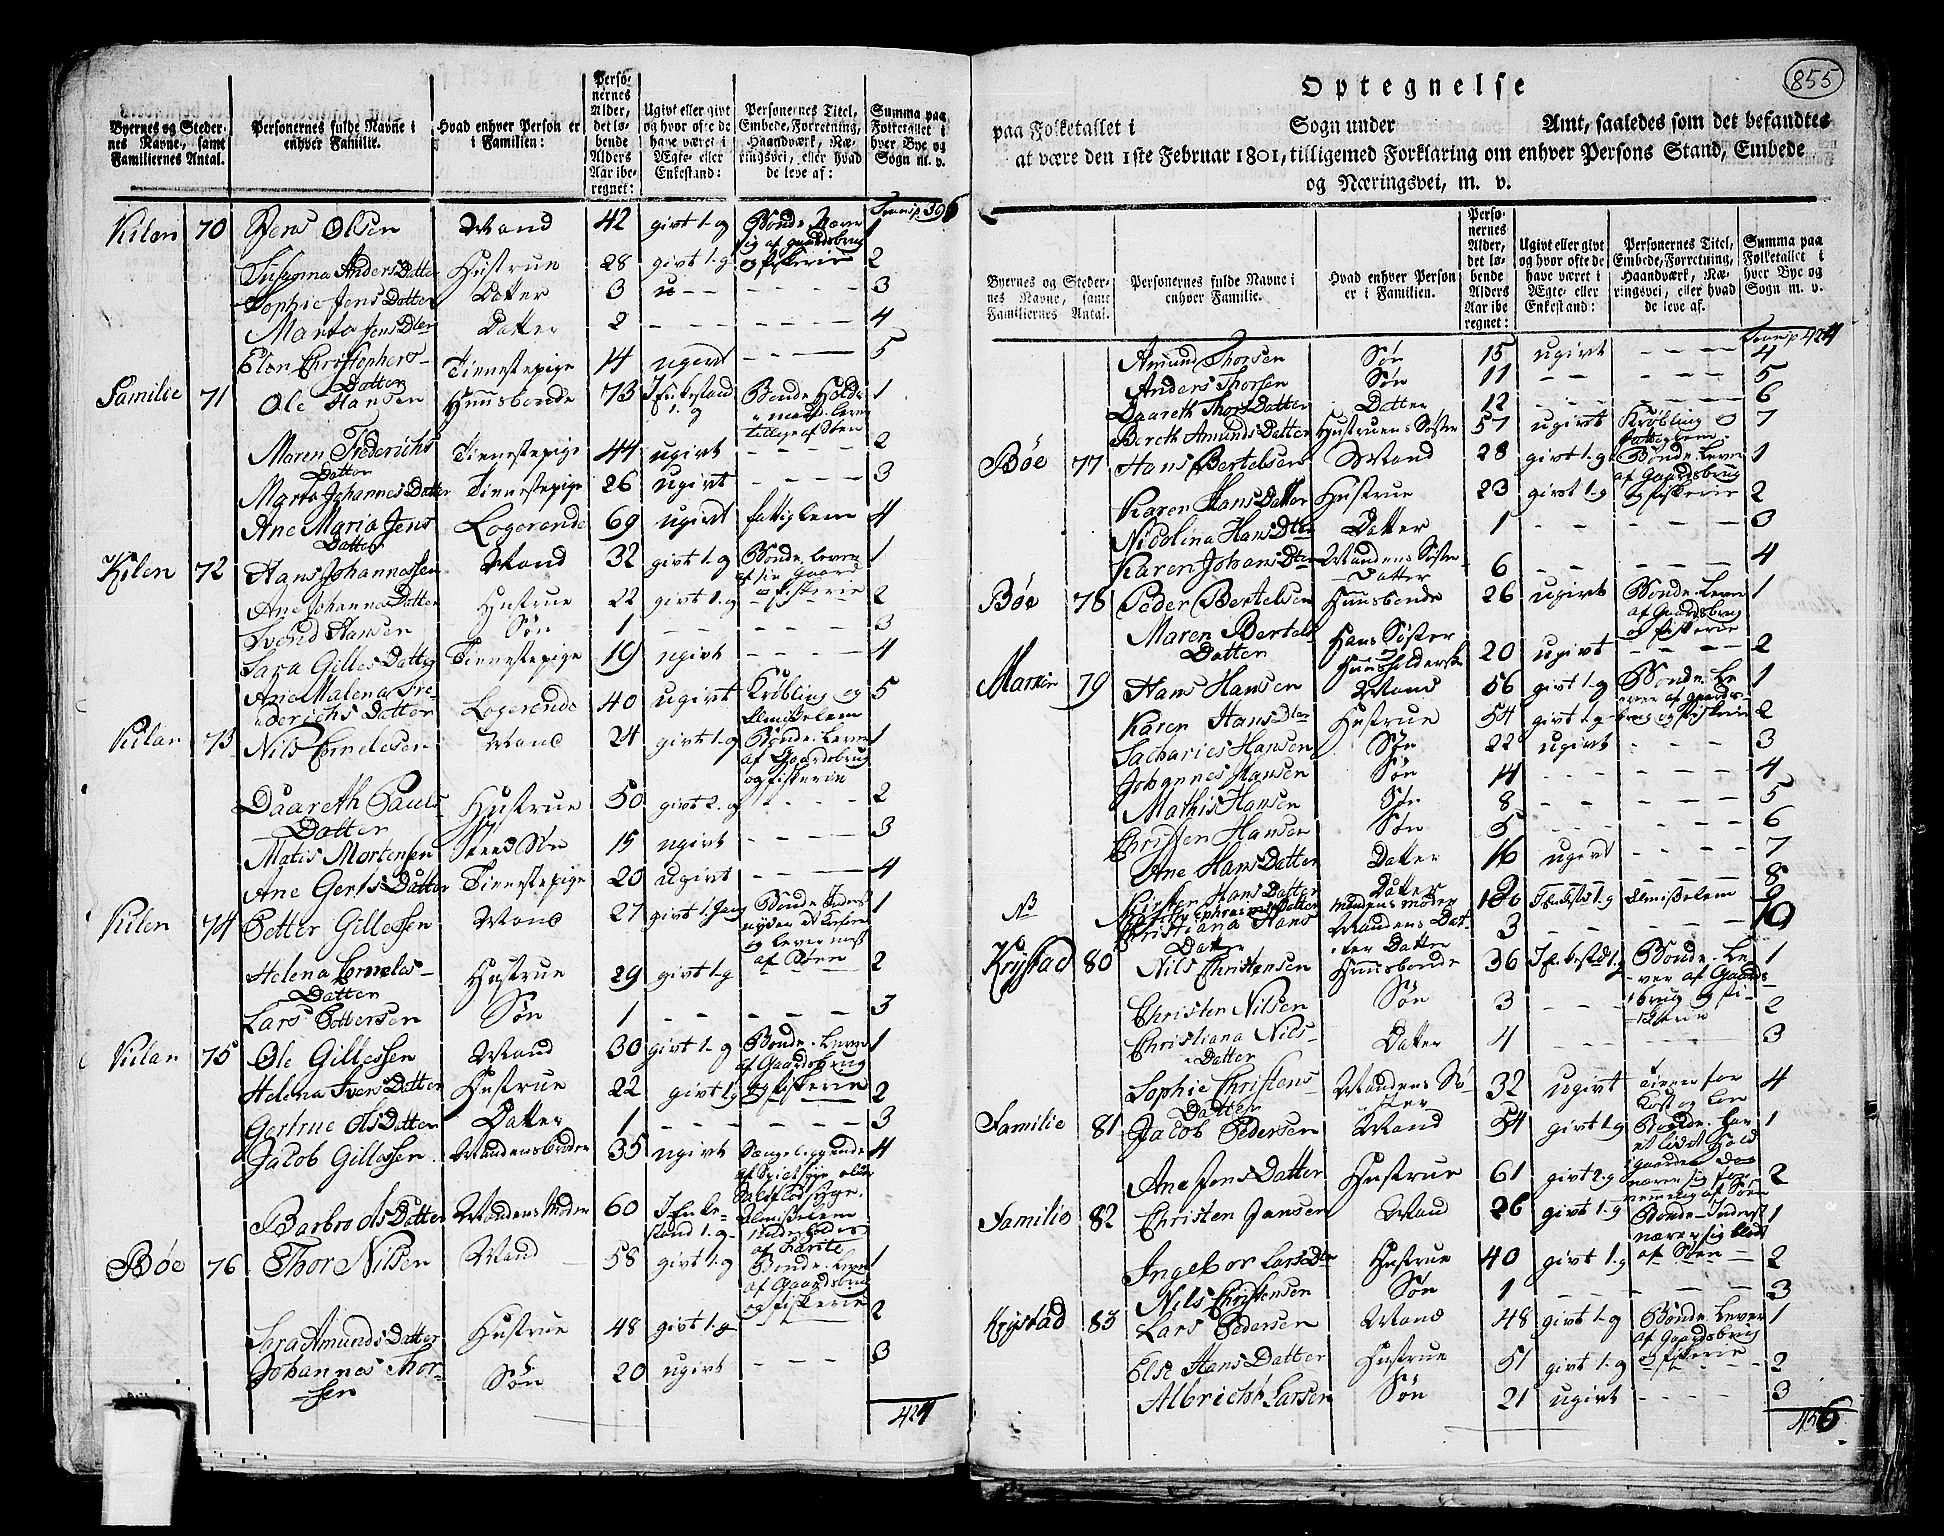 Byernes og Steder-
nes Navne, samt
Familiernes Antal.
Personernes fulde Navne i
enhver Familie.
Hvad enhver Person er
i Familien:
Perso-
nernes
Alder,
det lø-
bende
Alders
Aar ibe-
regnet:
Ugivt eller givt
og hvor ofte de
have været i
Ægte- eller
Enkestand:
Personernes Titel,
Embede, Forretning,
Haandværk, Næ-
ringsvei, eller hvad
de leve af:
Summa paa
Folketallet i
hver Bye og
Sogn m. v.
Transp. 396
Kilen 70 Jens Olsen Mand 42 givt 1. g Bonde. Nærer 1
sig af gaardsbrug
Susanna Anders Datter Hustrue 28 givt 1. g o fiskerie 2
Sophie Jens Datter Datter 3 u - - 3
Marta Jens Dter Datter 2 - - - - 4
Elen Christophers- Tienestepige 14 ugivt - - - - 5
Datter
Familie 71 Ole Hansen Huusbonde 73 I Enkestand Bonde Folde 1
1. g mand. lever
tillige af Søen
Maren Frederichs Tienestepige 44 ugivt - - - - 2
Datter
Marta Johannes Datter Tienestepige 26 ugivt - - - - 3
Ane Maria Jens Logerende 69 ugivt fattiglem 4
Datter
Kilen 72 Hans Johannessen Mand 32 givt 1. g Bonde. lever 1
af sin Gaard
Ane Johannes Datter Hustrue 22 givt 1. g o fiskerie 2
Svend Hansen Søn 1 - - - 3
Sara Gilles Datter Tienestepige 19 ugivt - - - - 4
Ane Malena Fre- Logerende 40 ugivt Krøbling og 5
derichs Datter Almißelem
Kilen 73 Nils Cornelesen Mand 24 givt 1. g Bonde. lever 1
af Gaardsbrug
og fiskerie
Daareth Pauls Hustrue 50 givt 2. g - - - 2
Datter
Matis Mortensen Sted Søn 15 ugivt - - - - 3
Ane Gerts Datter Tienestepige 20 ugivt - - - - 4
Kilen 74 Petter Gillessen Mand 27 givt 1. Gang Bonde. Inders 1
og lever mest
af Søen
Helena Corneles- Hustrue 29 givt 1. g 2
Datter
Lars Pettersen Søn 1 - - - - - 3
Kilen 75 Ole Gillessen Mand 30 givt 1. g Bonde. Lever 1
af Gaardsbrug
Helena Ivers Datter Hustrue 22 givt 1. g og fiskerie 2
Gertrue Ols Datter Datter 1 - - - - - - 3
Jacob Gillessen Mandens broder 35 ugivt Sængeliggende 4
Barbro Ols Datter Mandens Moder 60 I Enke- Almißelem
stand 1. g
Bøe 76 Thor Nilsen Mand 58 givt 1. g Bonde. Lever 1
af Gaardsbrug
og fiskerie
Sara Amunds Datter Hustrue 48 givt 1. g 2
Johannes Thor- Søn 20 ugivt - - - 3
sen
424
855
Optegnelse
paa Folketallet i Sogn under Amt, saaledes som det befandtes
at være den 1ste Februar 1801, tilligemed Forklaring om enhver Persons Stand, Embede
og Næringsvei, m. v.
Byernes og Steder-
nes Navne, samt
Familiernes Antal.
Personernes fulde Navne i
enhver Familie.
Hvad enhver Person
er i Familien.
Perso-
nernes
Alder,
det lø-
bende
Alders
Aar ibe-
regnet:
Ugivt eller givt
og hvor ofte de
have været i
Ægte- eller
Enkestand:
Personernes Titel,
Embede, Forretning,
Haandværk, Næ-
ringsvei, eller hvad
de leve af.
Summa paa
Folketallet i
hver Bye og
Sogn m. v.
Transp 424
Amund Thorsen Søn 15 ugivt - - - - 4
Anders Thorsen Søn 11 - - - - - 5
Daareth Thors Datter Datter 12 - - - - - 6
Bereth Amunds Datter Hustruens Søster 57 ugivt Krøbling o 7
fattiglem.
Bøe 77 Hans Bertelsen Mand 28 givt 1. g Bonde. Lever 1
af Gaardsbrug
Karen Hans Datter Hustrue 23 givt 1. g og fiskerie 2
Nicolina Hans Dter Datter 1 - - - - - 3
Karen Johans Dter Mandens Søster 6 - - - - - 4
Datter
Bøe 78 Peder Bertelsen Huusbonde 26 ugivt Bonde. Lever 1
af Gaardsbrug
o fiskerie
Maren Bertels Hans Søster 20 ugivt - - - - 2
Datter Huusholderske
79 Hans Hansen Mand 56 givt 1. g Bonde. Le 1
ver af Gaards-
Karen Hans Dter Hustrue 54 givt 1. g brug og fiskerie 2
Sacharies Hansen Søn 22 ugivt - - - 3
Johannes Hansen Søn 14 - - - - 4
Mathis Hansen Søn 8 - - - - - 5
Christen Hansen Søn 5 - - - - - 6
Ane Hans Datter Datter 16 ugivt - - - - 7
Kirsten Hans Datter Datter 8
NB Ephraims Datter Mandens Moder Almißelem 9
Christiana Hans Mandens Dat- 3 - - - - 10
Datter ter Datter
Krystad 80 Nils Christensen Huusbonde 36 Bonde. Le 1
ver af Gaards-
Christen Nilsen Søn 3 - - brug og fi- 2
skerie
Christiana Nils- Datter 4 - - - - - 3
Datter
Sophie Christens Mandens Sø- 32 ugivt tiener for 4
Datter ster Kost og løn
Familie 81 Jacob Pedersen Mand 54 givt 1. g Bonde. har 1
et lidet Hold
i gaarden
Ane Jens Datter Hustrue 61 givt 2. g nærer sig for- 2
nemmelig af Søen
Familie 82 Christen Jansen Mand 26 givt 1. g Bonde- Inderst 1
nærer sig blot
Ingebor Lars Dter Hustrue 40 givt 1. g af Søen - - 2
Nils Christensen Søn 1 - - - - - 3
Krystad 83 Lars Pedersen Mand 48 givt 1. g Bonde. Lever 1
af Gaardsbrug
Else Hans Datter Hustrue 51 givt 1. g o fiskerie 2
Albricht Larsen Søn 21 ugivt - - - - 3
456